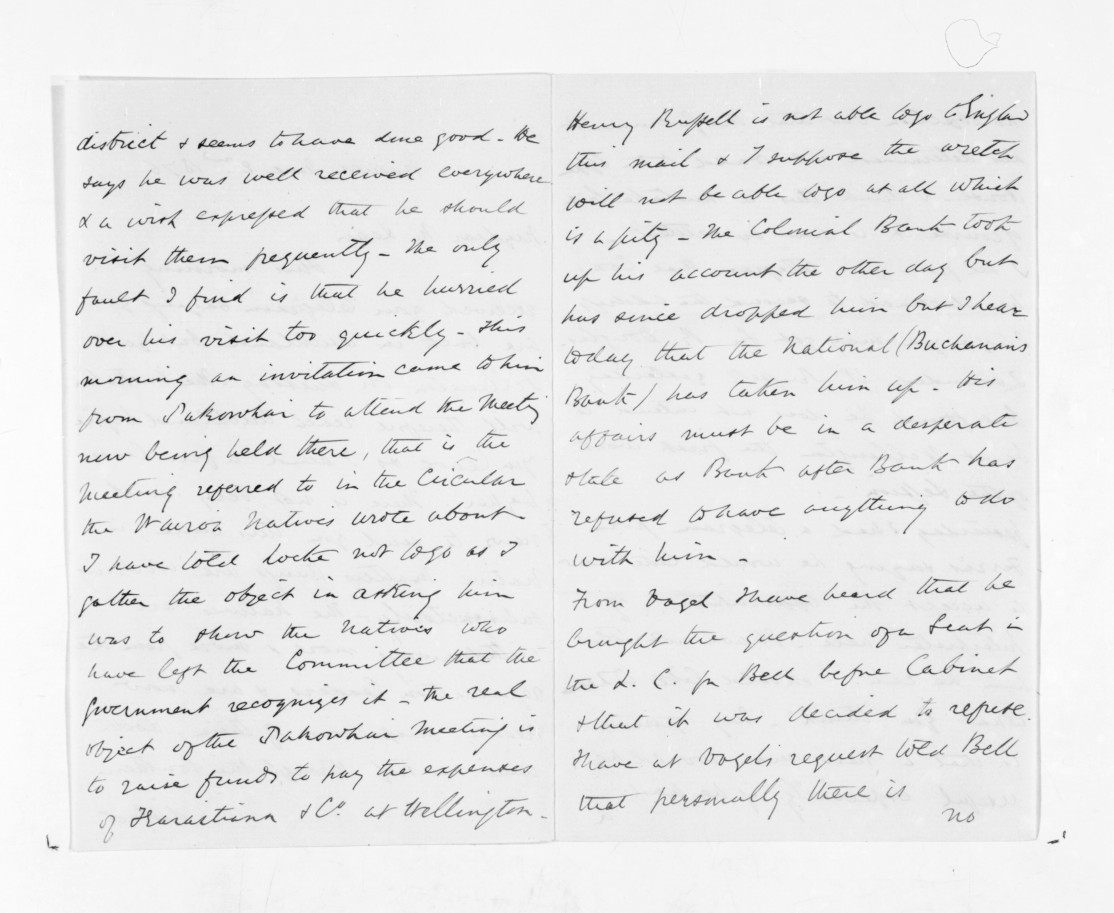 district & seems to have done good - He
says he was well received everywhere
& a wish expressed that he should
visit them frequently - The only
fault I find is that he hurried
over his visit too quickly - This
morning an invitation came to him
from Pakowhai to attend the Meeting
now being held there, that is the
Meeting referred to in the Circular
the Wairoa Natives wrote about
I have told Locke not to go as I
gather the object in asking him
was to show the Natives who
have left the Committee that the
Government recognizes it - the real
object of the Pakowhai Meeting is
to raise funds to pay the expenses
of Karaitiana & Co. at Wellington -
Henry Russell is not able to go to England
this mail & I suppose the wretch
will not be able to go at all which
is a pity - The Colonial Bank took
up his account the other day but
has since dropped him but I hear
today that the National (Buchanans
Bank) has taken him up - His
affairs must be in a desperate
state as Bank after Bank has
refused to have anything to do
with him -
From Vogel I have heard that he
brought the question of a Seat in
the L. C. for Bell before Cabinet
& that it was decided to refuse.
I have at Vogels request told Bell
that personally there is
no